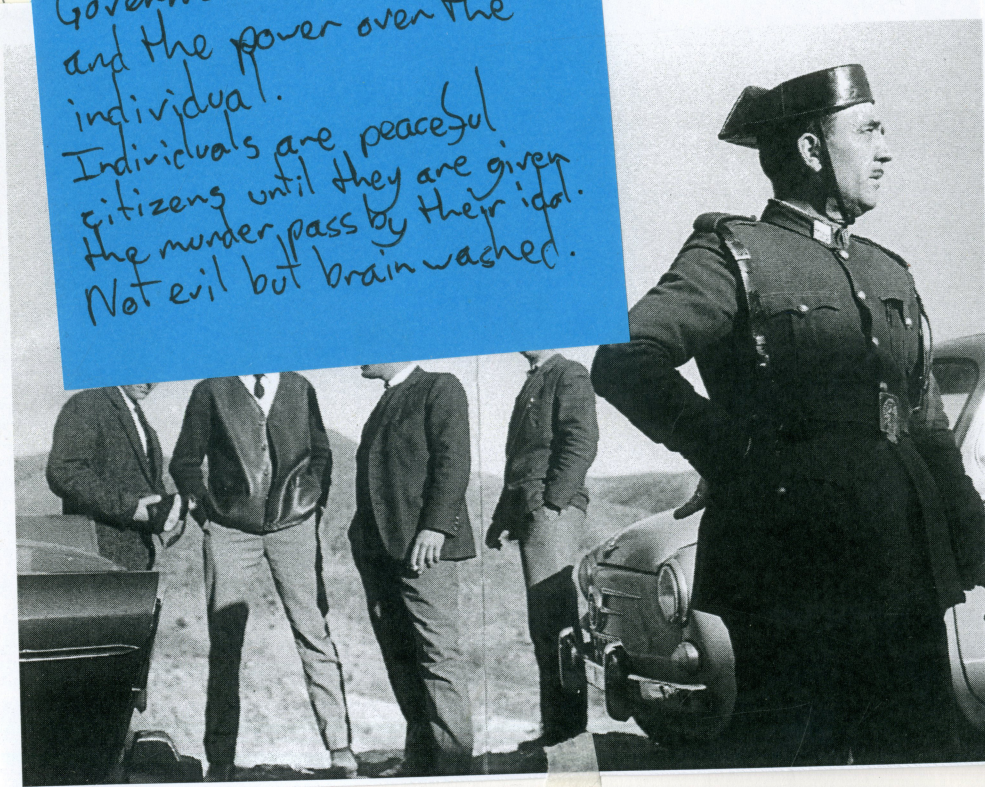 and the power over the
individual.
Individuals are peaceful
citizens until they are given
the murder pass by their idol.
Not evil but brainwashed.